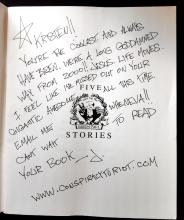 KRISTEN!!
YOU'RE THE COOLEST AND ALWAYS
HAVE BEEN. WE'RE A LONG GODDAMNED
WAY FROM 2000!! JESUS, LIFE MOVES.
I FEEL LIKE I'VE MISSED OUT ON YOUR
GIGANTIC AWESOME ALL THIS TIME
FIVE
EMAIL ME WHENEVER!!
CAN'T WAIT TO READ
STORIES
YOUR BOOK
WWW.CONSPIRACYTORIOT.COM